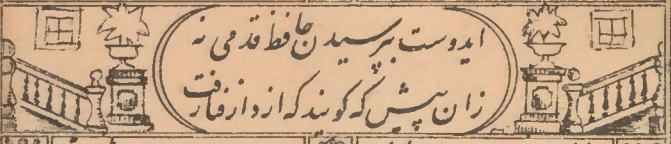 ایدوست بپرسیدن حافظ قدمی نه
زان پیش که گویند که از دار فنا رفت